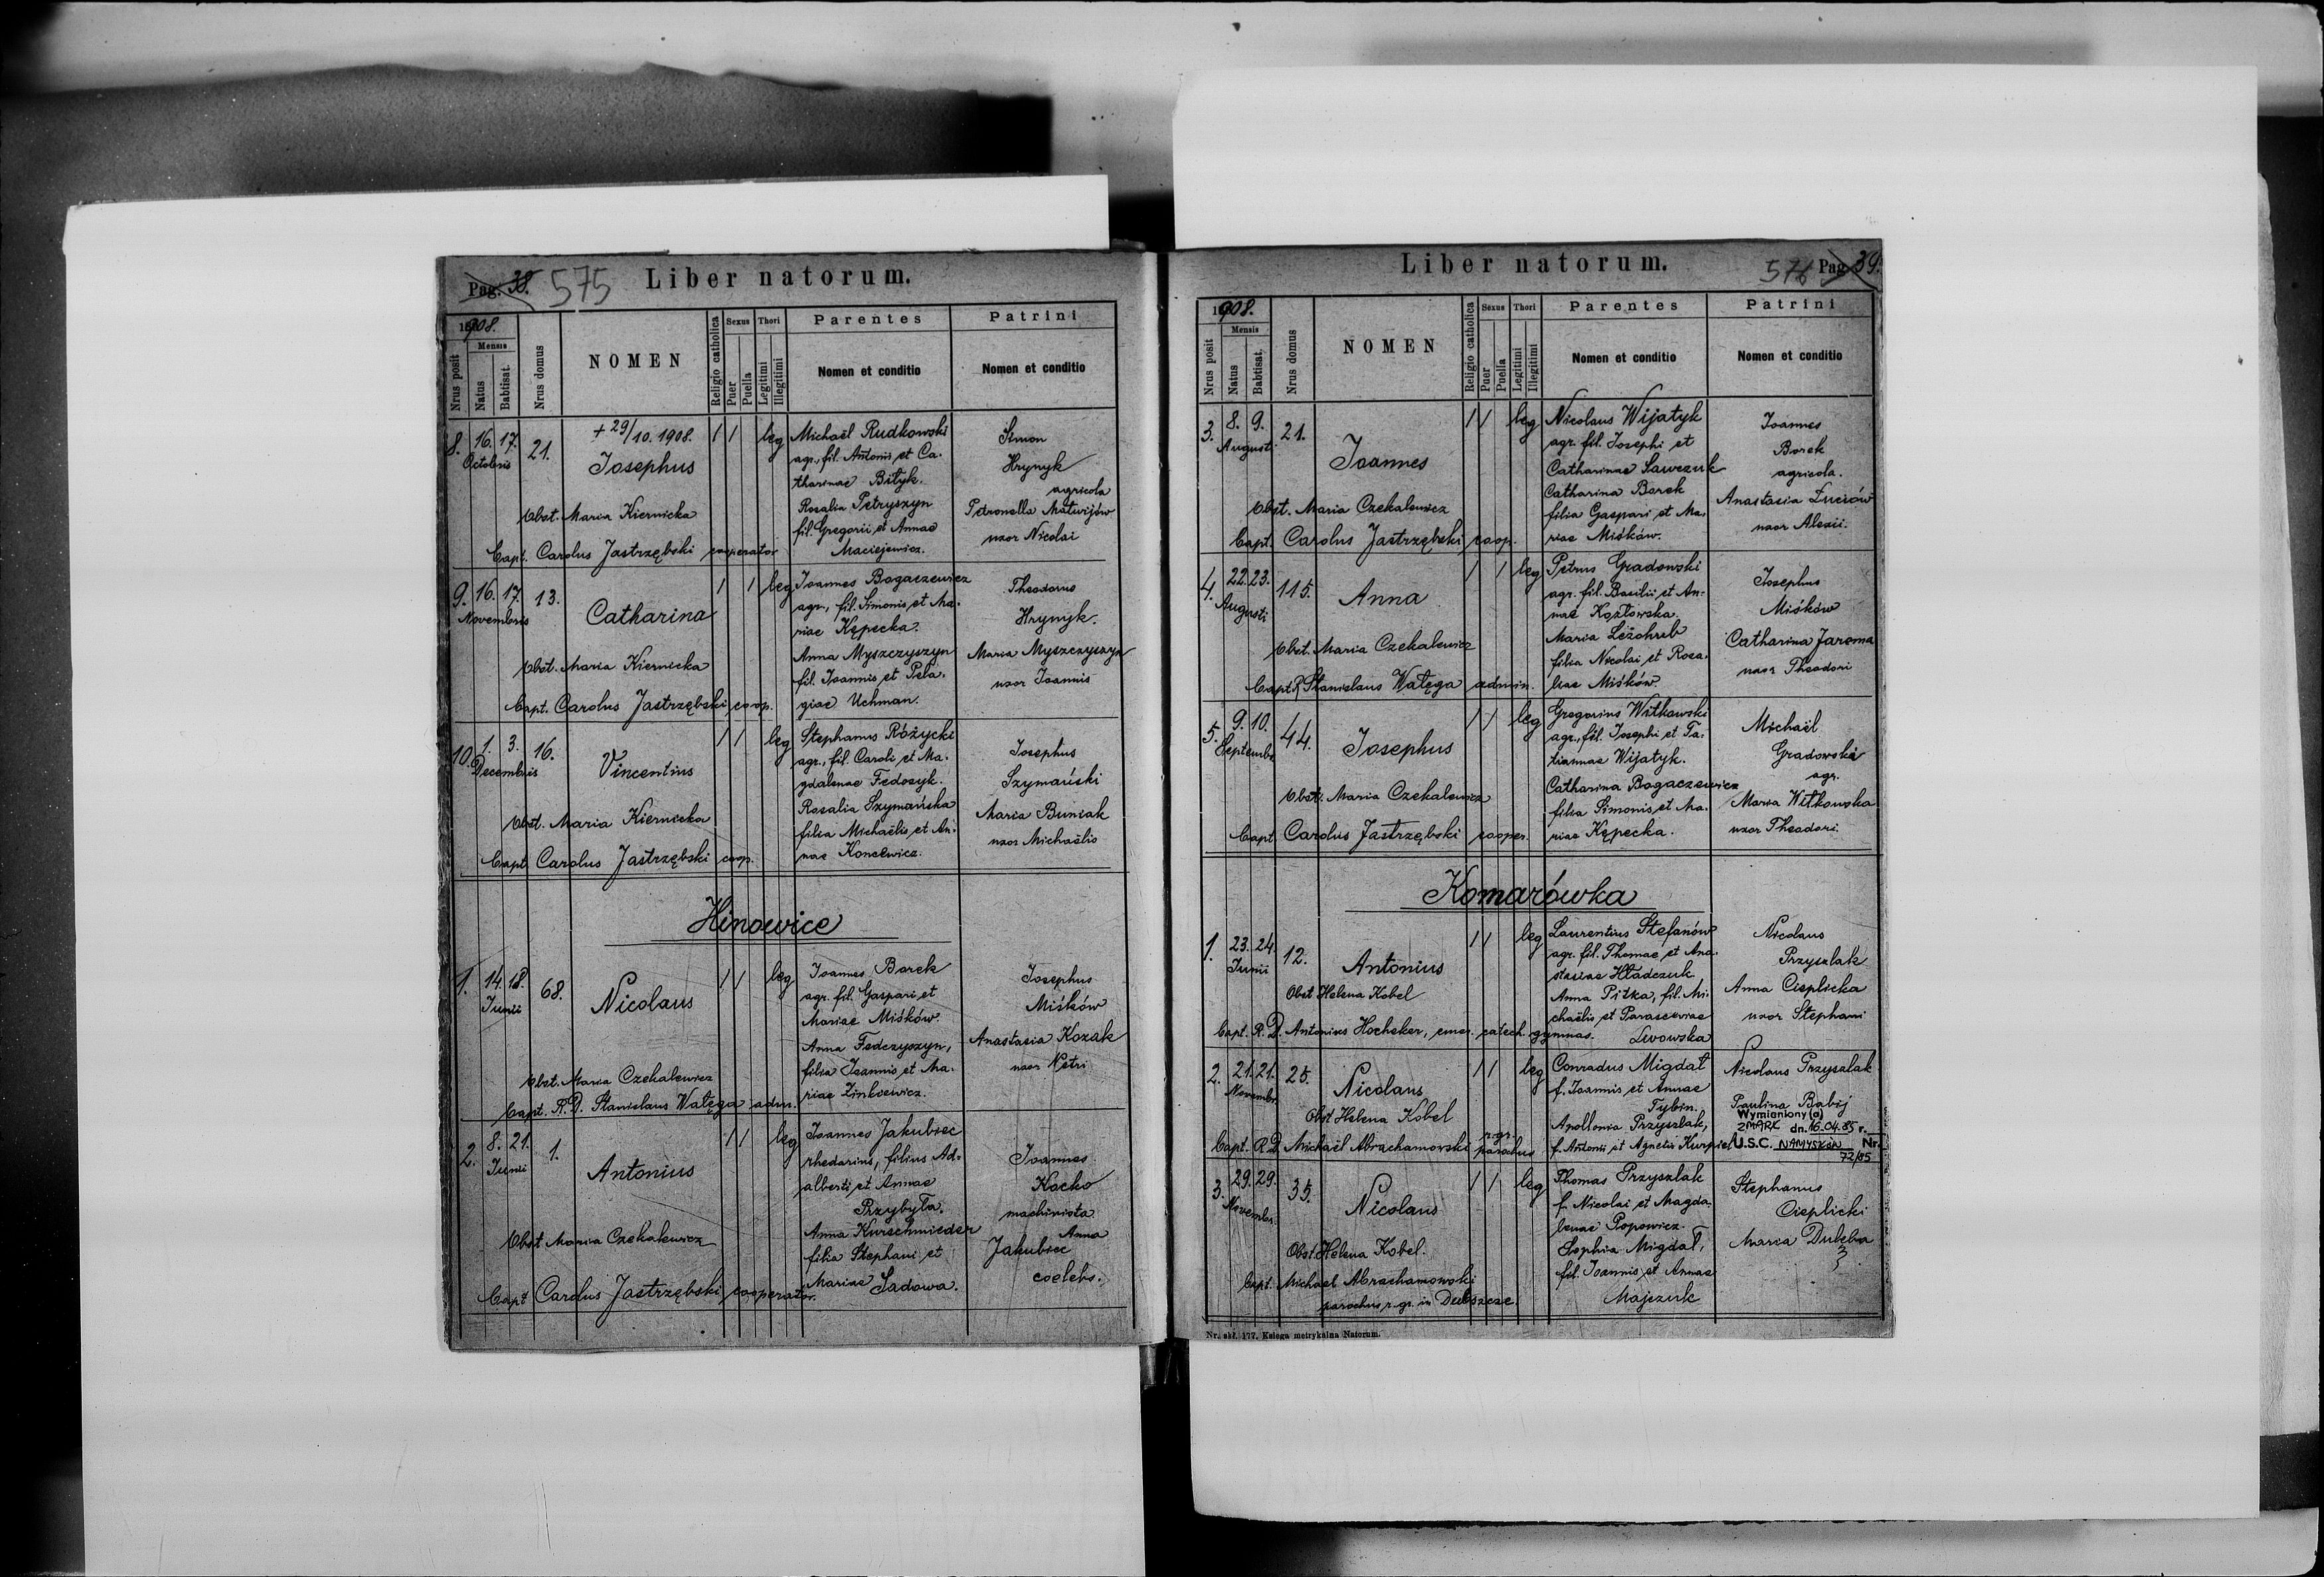 Pag. 38. 575 Liber natorum.
1908.
Nrus posit
Mensis
Natus
Babtisat.
Nrus domus
NOMEN
Religio catholica
Sexus
Puer
Puella
Thori
Legitimi
Illegitimi
Parentes
Nomen et conditio
Patrini
Nomen et conditio
8. 16. 17. Octobris 21.
+ 29/10. 1908.
Josephus
leg
Michaël Rudkowski
agr., fil. Antonii et Ca-
tharinae Bityk.
Rosalia Petryszyn
fil. Gregorii et Annae
Maciejewicz.
Simon
Hrynyk
agricola
Petronella Matwijów
uxor Nicolai
Obst. Maria Kiernicka
Bapt. Carolus Jastrzębski cooperator
9. 16. 17. Novembris 13.
Catharina
leg
Joannes Bogaczewicz
agr., fil. Simonis et Ma-
riae Kępecka.
Anna Myszczyszyn
fil. Joannis et Pela-
giae Uchman.
Theodorus
Hrynyk.
Maria Myszczyszyn
uxor Joannis
Obst. Maria Kiernicka
Bapt. Carolus Jastrzębski coop.
10. 1. 3. Decembris 16.
Vincentius
leg
Stephanus Różycki
agr., fil. Caroli et Ma-
gdalenae Fedosyk.
Rosalia Szymańska
filia Michaëlis et An-
nae Koncewicz.
Josephus
Szymański
Maria Buniak
uxor Michaëlis
Obst. Maria Kiernicka
Bapt. Carolus Jastrzębski coop.
Hinowice
1. 14. 18. Junii 68.
Nicolaus
leg
Joannes Borek
agr. fil. Gaspari et
Mariae Miśków
Anna Fedczyszyn,
filia Joannis et Ma-
riae Zinkiewicz.
Josephus
Miśków
Anastasia Kozak
uxor Petri
Obst. Maria Czekalewicz
Bapt. R. D. Stanislaus Wałęga adm.
2. 8. 21. Junii 1.
Antonius
leg
Joannes Jakubiec
rhedarius, filius Ad-
alberti et Annae
Przybyła.
Anna Kurschmieder
filia Stephani et
Mariae Sadowa.
Joannes
Kocko
machinista
Anna
Jakubiec
coelebs.
Obst Maria Czekalewicz
Bapt Carolus Jastrzębski cooperator.
Liber natorum. 576 Pag. 39.
1908.
Nrus posit
Mensis
Natus
Babtisat.
Nrus domus
NOMEN
Religio catholica
Sexus
Puer
Puella
Thori
Legitimi
Illegitimi
Parentes
Nomen et conditio
Patrini
Nomen et conditio
3. 8. 9. Augusti 21.
Joannes
leg
Nicolaus Wijatyk
agr. fil. Josephi et
Catharinae Sawczuk
Catharina Borek
filia Gaspari et Ma-
riae Miśków.
Joannes
Borek
agricola.
Anastasia Łuciów
uxor Alexii.
Obst. Maria Czekalewicz
Bapt. Carolus Jastrzębski coop.
4. 22. 23. Augusti 115.
Anna
leg
Petrus Gradowski
agr. fil. Basilii et An-
nae Kozłowska.
Maria Leżohub
filia Nicolai et Rosa-
liae Miśków.
Josephus
Miśków
Catharina Jarema
uxor Theodori
Obst. Maria Czekalewicz
Bapt. R Stanislaus Wałęga admin.
5. 9. 10. Septembr. 44.
Josephus
leg
Gregorius Witkowski
agr., fil. Josephi et Ta-
tiannae Wijatyk.
Catharina Bogaczewicz
filia Simonis et Ma-
riae Kępecka.
Michaël
Gradowski
agr.
Maria Witkowska
uxor Theodori.
Obst. Maria Czekalewicz
Bapt Carolus Jastrzębski cooper.
Komarówka
1. 23. 24. Junii 12.
Antonius
leg
Laurentius Stefanów
agr. fil. Thomae et Ana-
stasiae Hładczuk
Anna Pitka, fil. Mi-
chaëlis et Parasceviae
Lwowska
Nicolaus
Przyszlak
Anna Cieplicka
uxor Stephani
Obst Helena Kobel
Bapt. R. D. Antonius Hocheker, emer. catech. gymnas.
2. 21. 21. Novembr. 25.
Nicolaus
leg
Conradus Migdał
f. Joannis et Annae
Tybin.
Apollonia Przyszlak,
f. Antonii et Agnetis Kurpiel
Nicolaus Przyszlak
Paulina Babij
Wymieniony(a)
ZMARŁ dn. 16.04.85 r.
U.S.C. NAMYSŁÓW Nr.
72/85
Obst Helena Kobel
Bapt. R. D. Michaël Abrahamowski r. gr. parochus
3. 29. 29. Novembr. 35.
Nicolaus
leg
Thomas Przyszlak
f. Nicolai et Magda-
lenae Popowicz.
Sophia Migdał,
fil. Joannis et Annae
Majczuk
Stephanus
Cieplicki
Maria Duleba
Obst. Helena Kobel.
Bapt. Michael Abrahamowski
parochus r. gr. in Dubszcze.
Nr. skł. 177. Księga metrykalna Natorum.